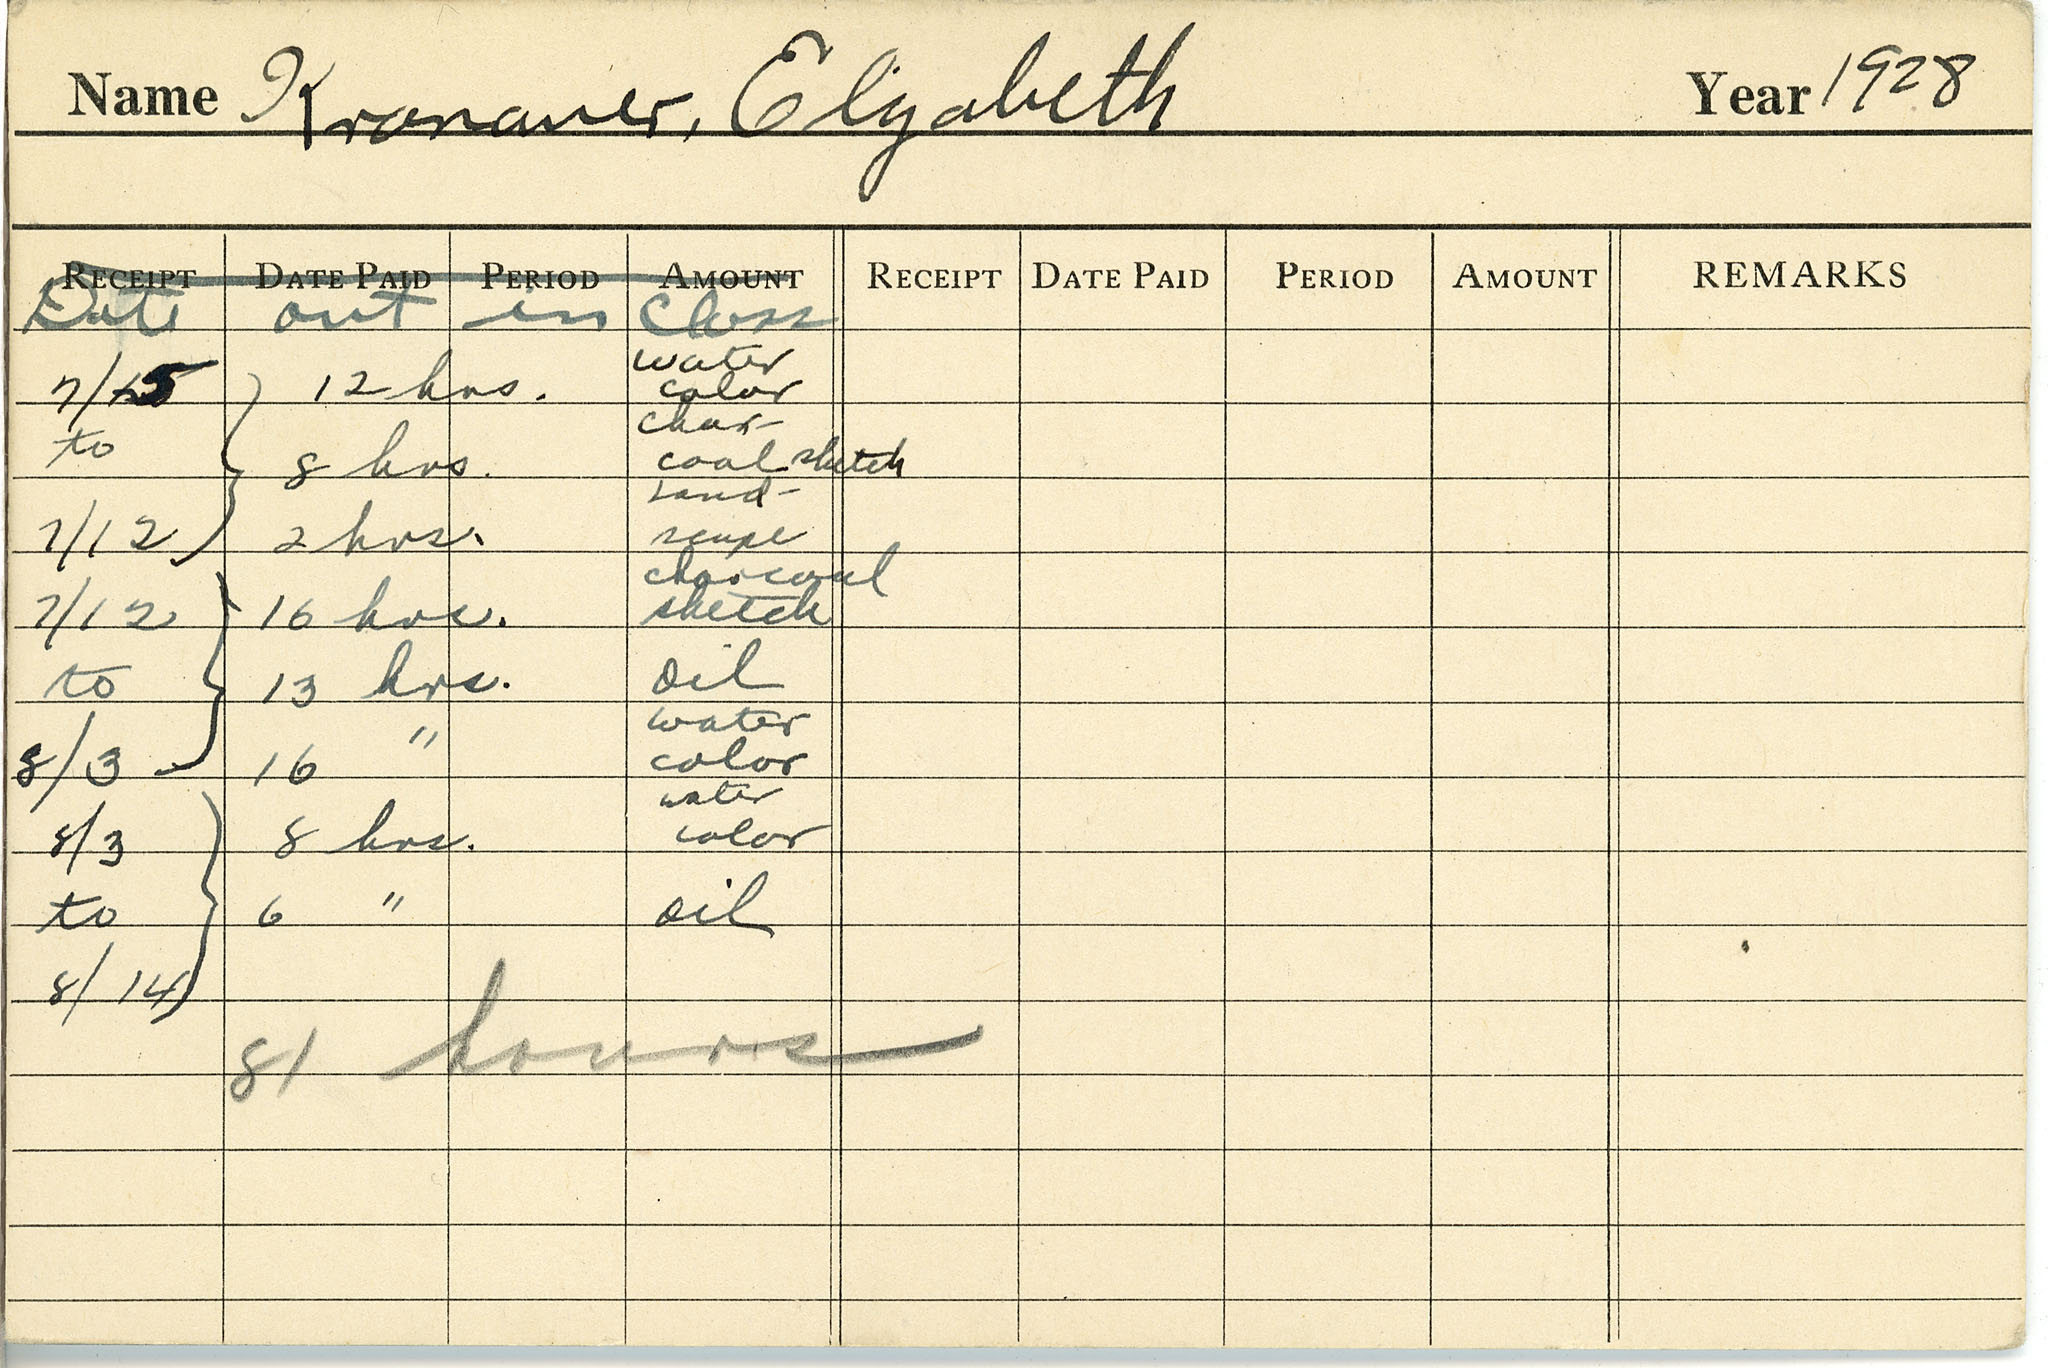 Name Kronauer, Elizabeth Year 1928
RECEIPT DATE PAID PERIOD AMOUNT RECEIPT DATE PAID PERIOD AMOUNT REMARKS
Date out in Class
water
7/5 12 hrs. color
char-
to 8 hrs. coal sketch
Land-
7/12 2 hrs. scape
charcoal
7/12 16 hrs. sketch
to 13 hrs. oil
water
8/3 16 " color
water
8/3 8 hrs. color
to 6 " oil
8/14
81 hours